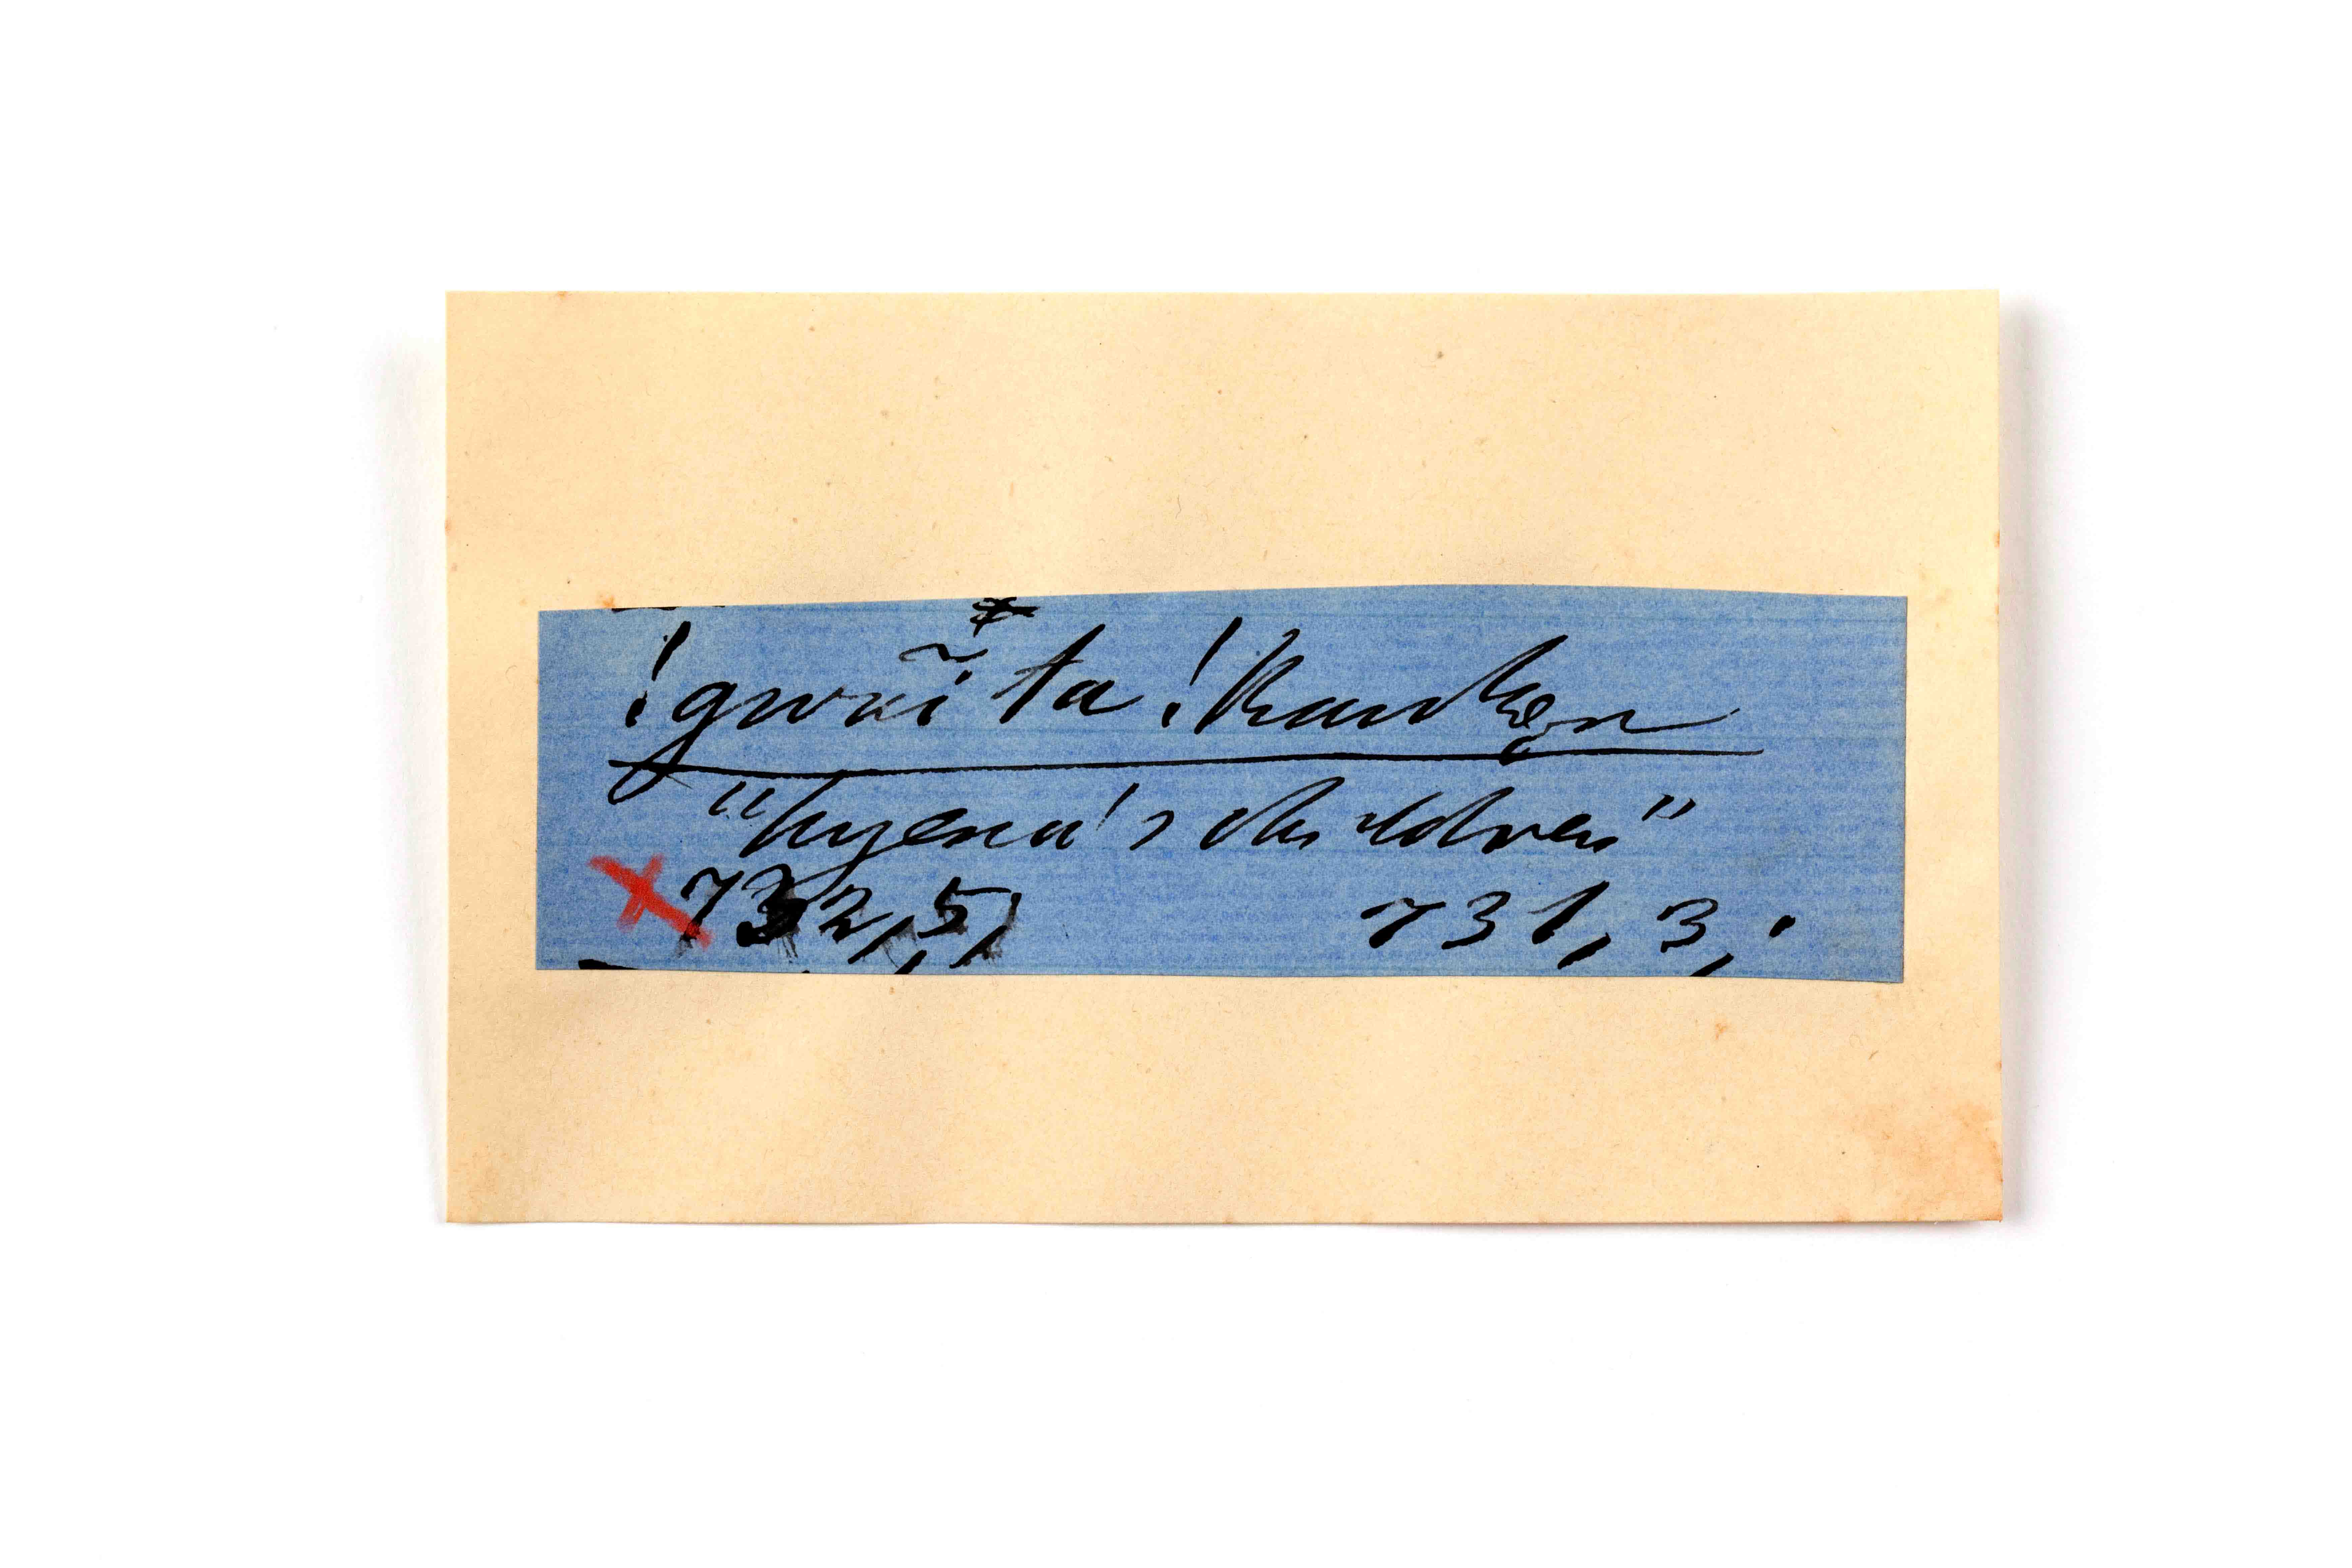 !gwãĩ ta !kauken
"hyena's children"
732,5, 731,3,.